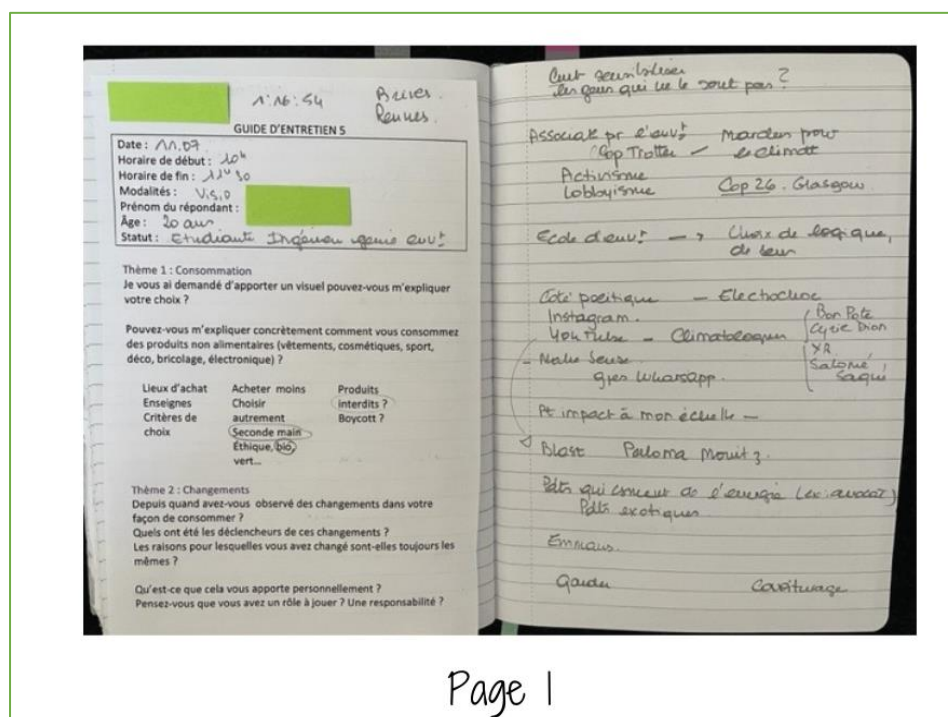 1:16:54
Bruces.
Rennes.
GUIDE D'ENTRETIEN 5
Date : 11.07
Horaire de début : 10h
Horaire de fin : 11h30
Modalités : Visio
Prénom du répondant :
Âge : 20 ans
Statut : Etudiante Ingénieur génie envt
Thème 1 : Consommation
Je vous ai demandé d'apporter un visuel pouvez-vous m'expliquer
votre choix ?
Pouvez-vous m'expliquer concrètement comment vous consommez
des produits non alimentaires (vêtements, cosmétiques, sport,
déco, bricolage, électronique) ?
Lieux d'achat Acheter moins Produits
Enseignes Choisir interdits ?
Critères de autrement Boycott ?
choix Seconde main
Éthique, bio,
vert...
Thème 2 : Changements
Depuis quand avez-vous observé des changements dans votre
façon de consommer ?
Quels ont été les déclencheurs de ces changements ?
Les raisons pour lesquelles vous avez changé sont-elles toujours les
mêmes ?
Qu'est-ce que cela vous apporte personnellement ?
Pensez-vous que vous avez un rôle à jouer ? Une responsabilité ?
Cmt sensibiliser
les gens qui ne le sont pas ?
Associat pr l'envt Marches pour
Cop Trotter — le climat
Activisme
Lobbyisme Cop 26. Glasgow
Ecole d'envt —> Choix de logique,
de sens
Coté politique — Electochoc
Instagram. Bon Pote
YouTube — Climatologues Cyril Dion
XR
- Make Sense Salomé
gpes Whatsapp. Saqué
Pt impact à mon échelle —
Blast Paloma Moritz.
Pdts qui consent de l'énergie (ex: avocat)
Pdts exotiques.
Emmaus.
Covoiturage
Page 1